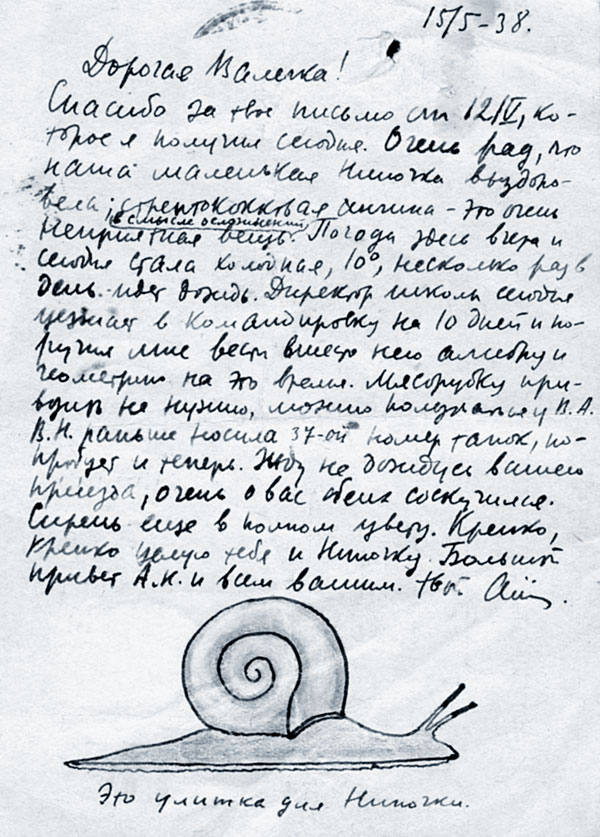 15/5-38.
Дорогая Валечка!
Спасибо за твое письмо от 12/V, ко-
торое я получил сегодня. Очень рад, что
наша маленькая Ниночка выздоро-
вела; стрептококковая ангина - это очень
(в смысле осложнений)
неприятная вещь. Погода здесь вчера и
сегодня стала холодная, 10°, несколько раз в
день идет дождь. Директор школы сегодня
уезжает в командировку на 10 дней и по-
ручил мне вести вместо него алгебру и
геометрию на это время. Мясорубку при-
возить не нужно, можно пользоваться у В.А.
В.Н. раньше носила 37-ой номер тапок, по-
пробует и теперь. Жду не дождусь вашего
приезда, очень о вас обеих соскучился.
Сирень еще в полном цвету. Крепко,
крепко целую тебя и Ниночку. Большой
привет А.Н. и всем вашим. Твой
Это улитка для Ниночки.